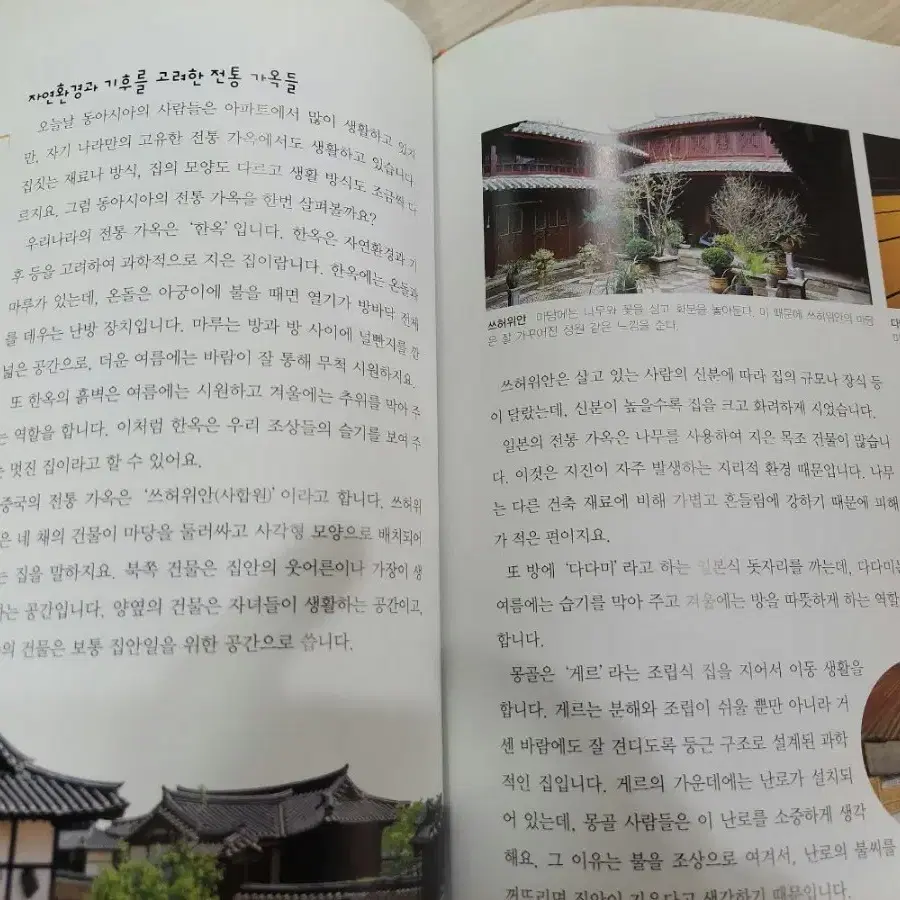 자연환경과 기후를 고려한 전통 가옥들
오늘날 동아시아의 사람들은 아파트에서 많이 생활하고 있지
만, 자기 나라만의 고유한 전통 가옥에서도 생활하고 있습니다
집짓는 재료나 방식, 집의 모양도 다르고 생활 방식도 조금씩 다
르지요. 그럼 동아시아의 전통 가옥을 한번 살펴볼까요?
우리나라의 전통 가옥은 ‘한옥’입니다. 한옥은 자연환경과 기
후 등을 고려하여 과학적으로 지은 집이랍니다. 한옥에는 온돌과
마루가 있는데, 온돌은 아궁이에 불을 때면 열기가 방바닥 전체
를 데우는 난방 장치입니다. 마루는 방과 방 사이에 널빤지를 깐
넓은 공간으로, 더운 여름에는 바람이 잘 통해 무척 시원하지요.
또 한옥의 흙벽은 여름에는 시원하고 겨울에는 추위를 막아 주
는 역할을 합니다. 이처럼 한옥은 우리 조상들의 슬기를 보여 주
는 멋진 집이라고 할 수 있어요.
중국의 전통 가옥은 ‘쓰허위안(사합원)’이라고 합니다. 쓰허위
은 네 채의 건물이 마당을 둘러싸고 사각형 모양으로 배치되어
는 집을 말하지요. 북쪽 건물은 집안의 웃어른이나 가장이 생
하는 공간입니다. 양옆의 건물은 자녀들이 생활하는 공간이고,
의 건물은 보통 집안일을 위한 공간으로 씁니다.
쓰허위안 마당에는 나무와 꽃을 심고 화분을 놓아둔다. 이 때문에 쓰허위안의 마당
은 잘 가꾸어진 정원 같은 느낌을 준다.
쓰허위안은 살고 있는 사람의 신분에 따라 집의 규모나 장식 등
이 달랐는데, 신분이 높을수록 집을 크고 화려하게 지었습니다.
일본의 전통 가옥은 나무를 사용하여 지은 목조 건물이 많습니
다. 이것은 지진이 자주 발생하는 지리적 환경 때문입니다. 나무
는 다른 건축 재료에 비해 가볍고 흔들림에 강하기 때문에 피해
가 적은 편이지요.
또 방에 ‘다다미’라고 하는 일본식 돗자리를 까는데, 다다미는
여름에는 습기를 막아 주고 겨울에는 방을 따뜻하게 하는 역할
합니다.
몽골은 ‘게르’라는 조립식 집을 지어서 이동 생활을
합니다. 게르는 분해와 조립이 쉬울 뿐만 아니라 거
센 바람에도 잘 견디도록 둥근 구조로 설계된 과학
적인 집입니다. 게르의 가운데에는 난로가 설치되
어 있는데, 몽골 사람들은 이 난로를 소중하게 생각
해요. 그 이유는 불을 조상으로 여겨서, 난로의 불씨를
꺼뜨리면 집안이 기운다고 생각하기 때문입니다.